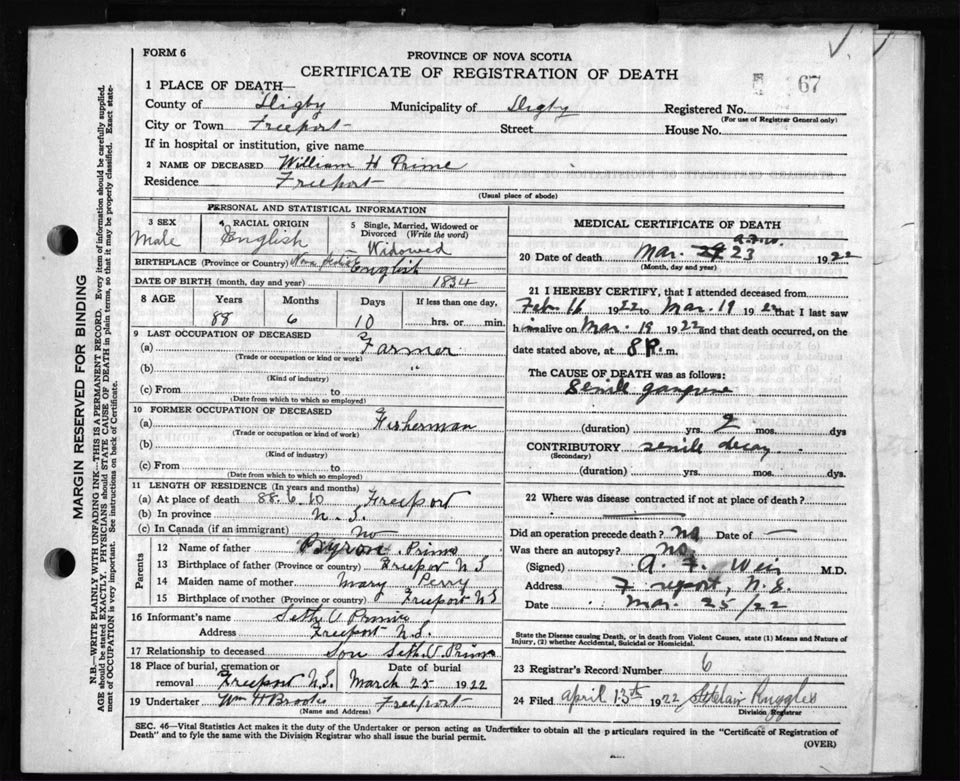 FORM 6
PROVINCE OF NOVA SCOTIA
CERTIFICATE OF REGISTRATION OF DEATH
67
1 PLACE OF DEATH—
County of Digby Municipality of Digby Registered No.
(For use of Registrar General only)
City or Town Freeport Street House No.
If in hospital or institution, give name
2 NAME OF DECEASED William H Prime
Residence Freeport
(Usual place of abode)
PERSONAL AND STATISTICAL INFORMATION
3 SEX Male
4 RACIAL ORIGIN English
5 Single, Married, Widowed or Divorced (Write the word) Widowed
BIRTHPLACE (Province or Country) Nova Scotia English
DATE OF BIRTH (month, day and year) 1834
8 AGE Years 88 Months 6 Days 10 If less than one day, hrs. or min.
9 LAST OCCUPATION OF DECEASED
(a) Farmer
(Trade or occupation or kind or work)
(b) "
(Kind of industry)
(c) From to
(Date from which to which so employed)
10 FORMER OCCUPATION OF DECEASED
(a) Fisherman
(Trade or occupation or kind of work)
(b)
(Kind of industry)
(c) From to
(Date from which to which so employed)
11 LENGTH OF RESIDENCE (In years and months)
(a) At place of death 88. 6. 10 Freeport
(b) In province N. S.
(c) In Canada (if an immigrant) No
Parents
12 Name of father Byron Prime
13 Birthplace of father (Province or country) Freeport N S
14 Maiden name of mother Mary Perry
15 Birthplace of mother (Province or country) Freeport N S
16 Informant's name Seth O Prime
Address Freeport N.S.
17 Relationship to deceased Son Seth. O. Prime
18 Place of burial, cremation or removal Freeport N.S. Date of burial March 25 1922
19 Undertaker Wm H Brooks Freeport
(Name and Address)
MEDICAL CERTIFICATE OF DEATH
20 Date of death Mar. 23 1922
(Month, day and year)
21 I HEREBY CERTIFY, that I attended deceased from
Feb. 16 1922 to Mar. 19 1922 that I last saw
him alive on Mar. 19 1922 and that death occurred, on the
date stated above, at 8 P. m.
The CAUSE OF DEATH was as follows:
Senile gangrene
(duration) yrs. 2 mos. dys
CONTRIBUTORY senile decay
(Secondary)
(duration) yrs. mos. dys.
22 Where was disease contracted if not at place of death?
Did an operation precede death? No Date of —
Was there an autopsy? No
(Signed) A. F. Weir M.D.
Address Freeport, N.S.
Date Mar. 25/22
State the Disease causing Death, or in death from Violent Causes, state (1) Means and Nature of Injury, (2) whether Accidental, Suicidal or Homicidal.
23 Registrar's Record Number 6
24 Filed April 13th 1922 St Clair Ruggles
Division Registrar
SEC. 46—Vital Statistics Act makes it the duty of the Undertaker or person acting as Undertaker to obtain all the particulars required in the "Certificate of Registration of
Death" and to fyle the same with the Division Registrar who shall issue the burial permit.
(OVER)
MARGIN RESERVED FOR BINDING
N.B.—WRITE PLAINLY WITH UNFADING INK—THIS IS A PERMANENT RECORD. Every item of information should be carefully supplied.
AGE should be stated EXACTLY. PHYSICIANS should STATE CAUSE OF DEATH in plain terms, so that it may be properly classified. Exact statement of OCCUPATION is very important. See instructions on back of Certificate.